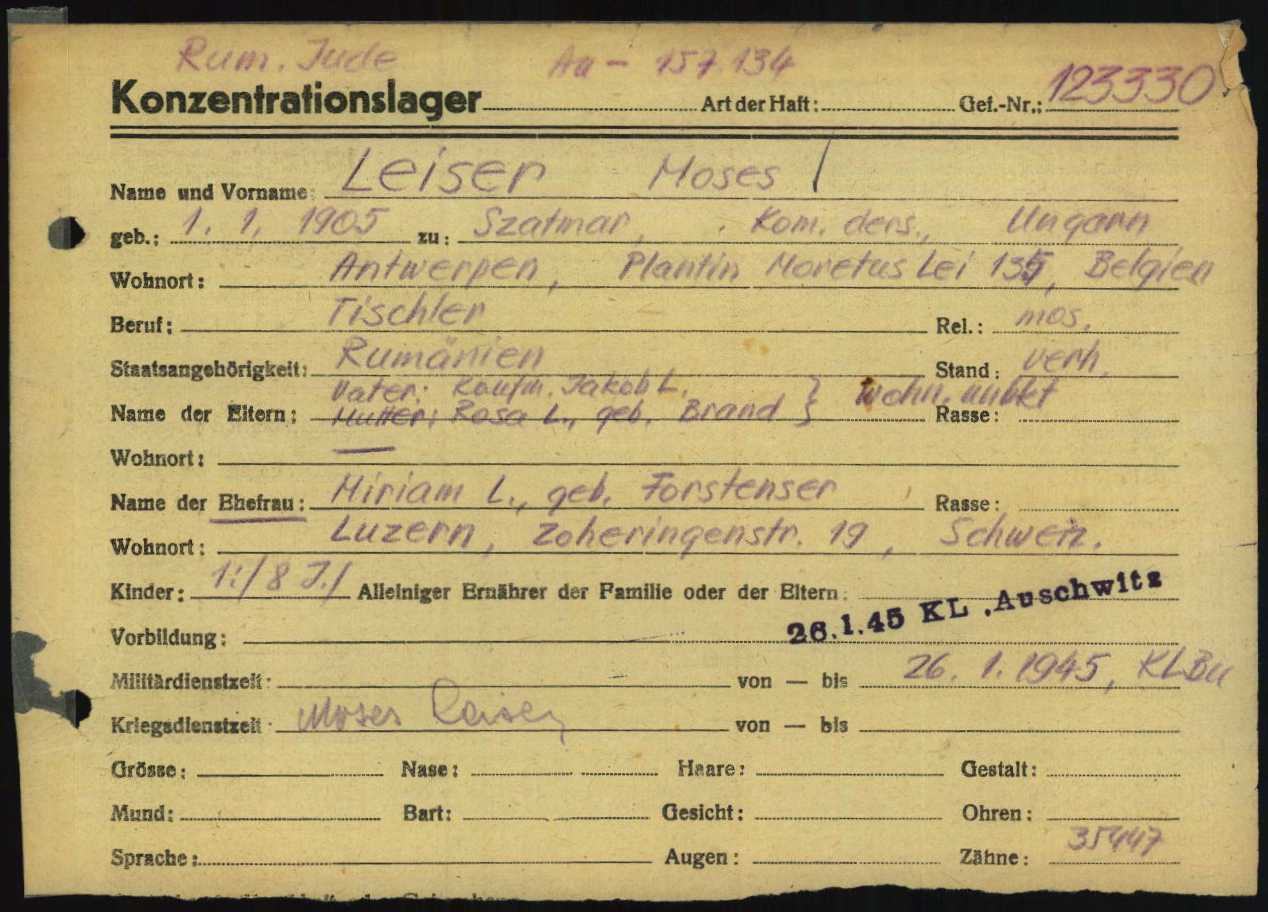 Rum. Jude Au - 157.134
Konzentrationslager Art der Haft: Gef.-Nr.: 123330
Name und Vorname: Leiser Moses /
geb.: 1. 1. 1905 zu: Szatmar, Kom. ders., Ungarn
Wohnort: Antwerpen, Plantin Moretus Lei 135, Belgien
Beruf: Tischler Rel.: mos.
Staatsangehörigkeit: Rumänien Stand: verh.
Vater: Kaufm. Jakob L. } wohn. unbkt
Name der Eltern: Mutter: Rosa L., geb. Brand Rasse:
Wohnort: —
Name der Ehefrau: Miriam L., geb. Forstenser Rasse:
Wohnort: Luzern, Zoheringenstr. 19, Schweiz.
Kinder: 1:/8 J./ Alleiniger Ernährer der Familie oder der Eltern:
26.1.45 KL. Auschwitz
Vorbildung:
Militärdienstzeit: von — bis 26. 1. 1945, KLBu
Kriegsdienstzeit: Moses Leiser von — bis
Grösse: Nase: Haare: Gestalt:
Mund: Bart: Gesicht: Ohren:
Sprache: Augen: Zähne: 35447